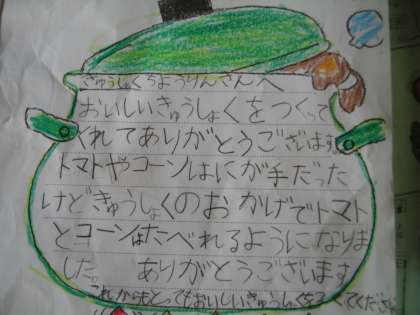 きゅうしょくちょうりいんさんへ
おいしいきゅうしょくをつくって
くれてありがとうございます。
トマトやコーンはにが手だった
けどきゅうしょくのおかげでトマト
とコーンはたべれるようになりま
した。 ありがとうございます
これからもとってもおいしいきゅうしょくをつくってください